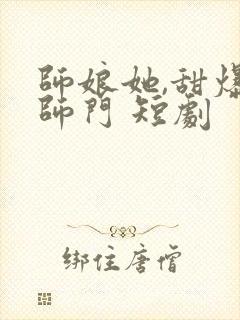 師娘她,甜爆
師門 短劇
绑住唐僧